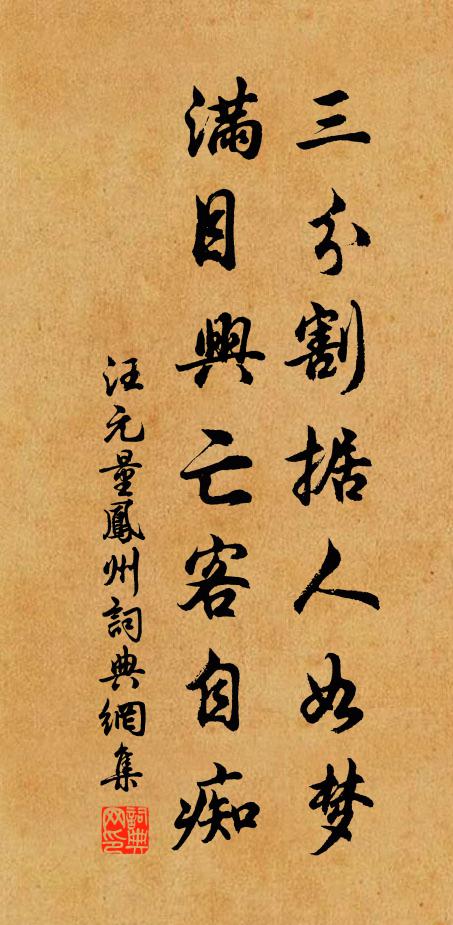 三分割据人如梦
滿目興亡客自痴
汪元量鳳州詞典網集
詞典网印